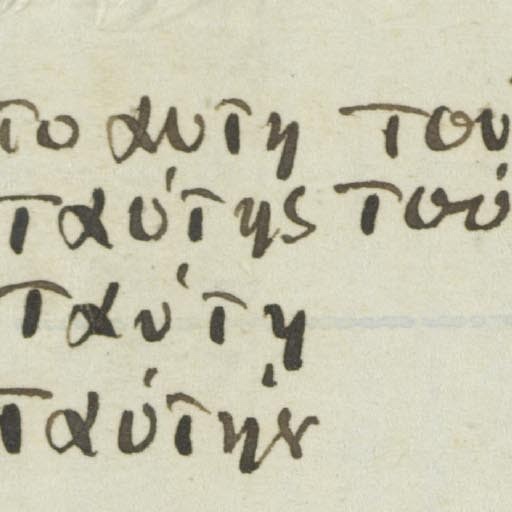 το αυτη του
ταύτης τού
ταύτη
ταύτήν